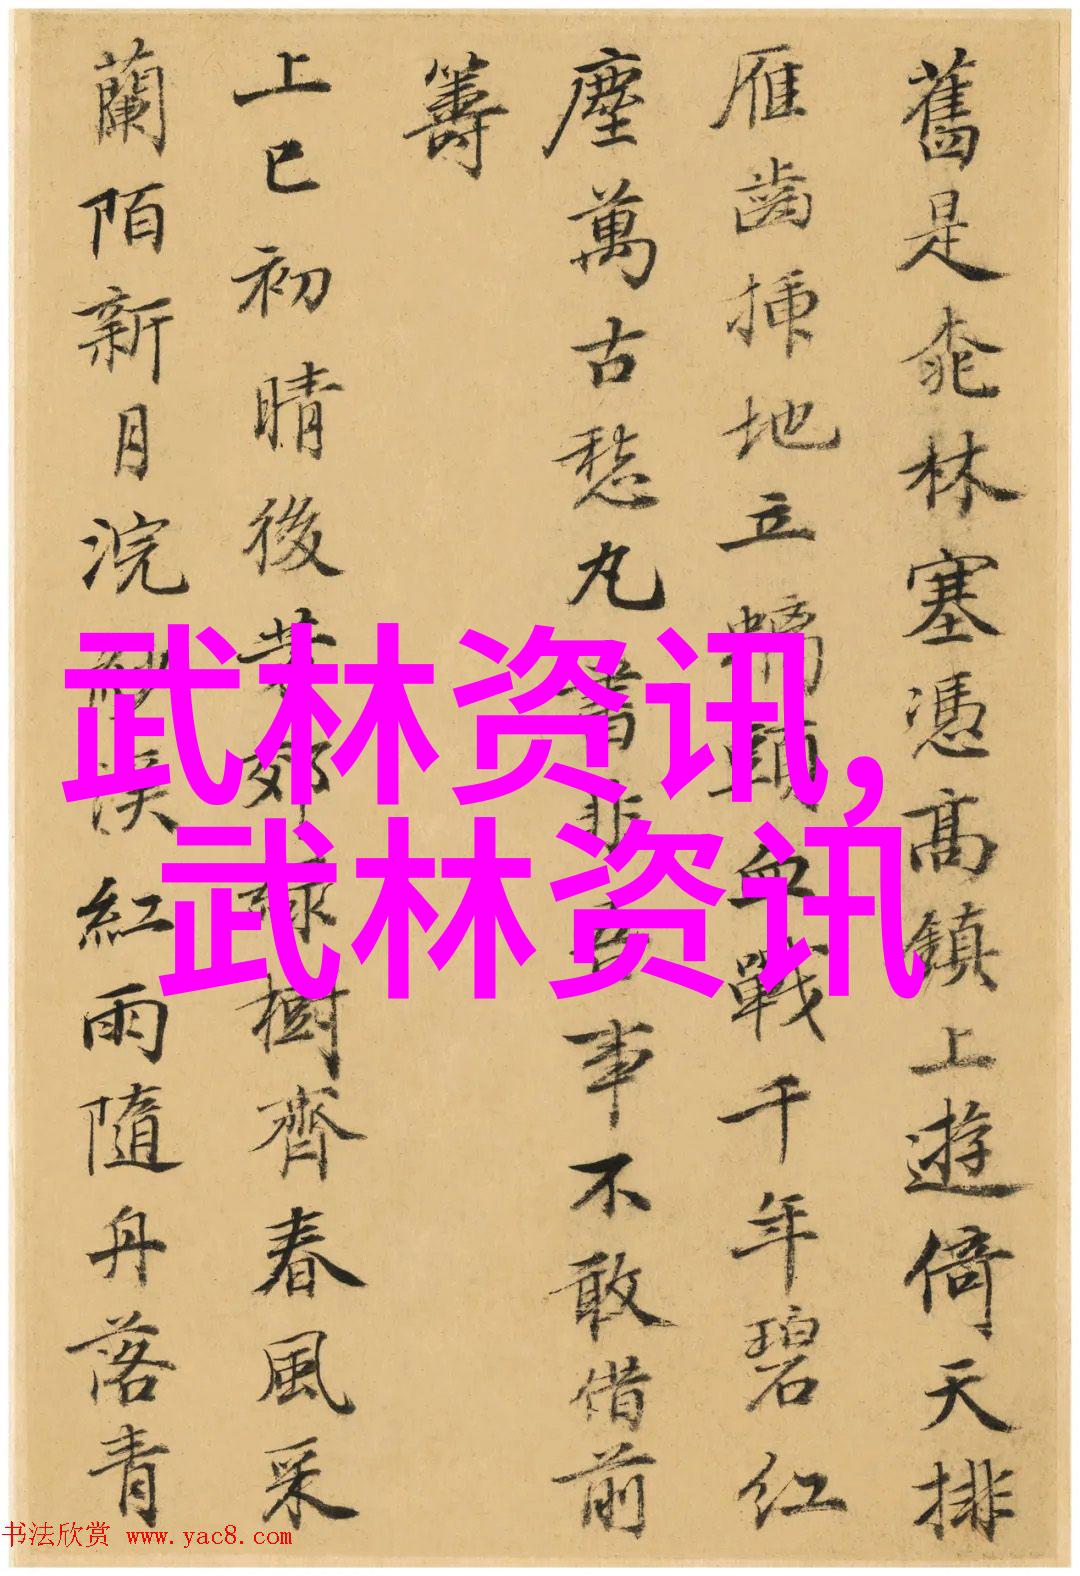 舊是桃林塞憑高鎮上遊倚天排
雁齒插地立螭頭血戰千年碧紅
塵萬古愁丸書非吾事不敢借前
籌
上巳初晴後芳郊綠樹齊春風采
蘭陌新月浣紗溪紅雨隨舟落青
武林资讯,
武林资讯
书法欣赏 www.yac8.com